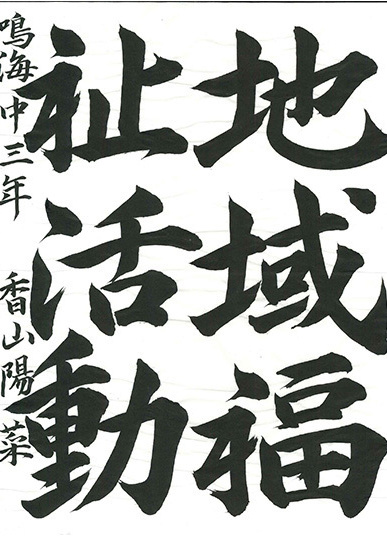 地域福
祉活動
鳴海中三年 香山陽菜